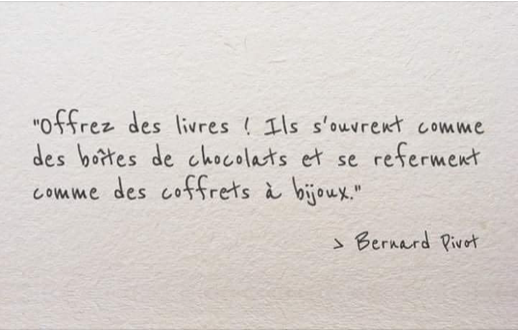 "Offrez des livres ! Ils s'ouvrent comme
des boîtes de chocolats et se referment
comme des coffrets à bijoux."
> Bernard Pivot